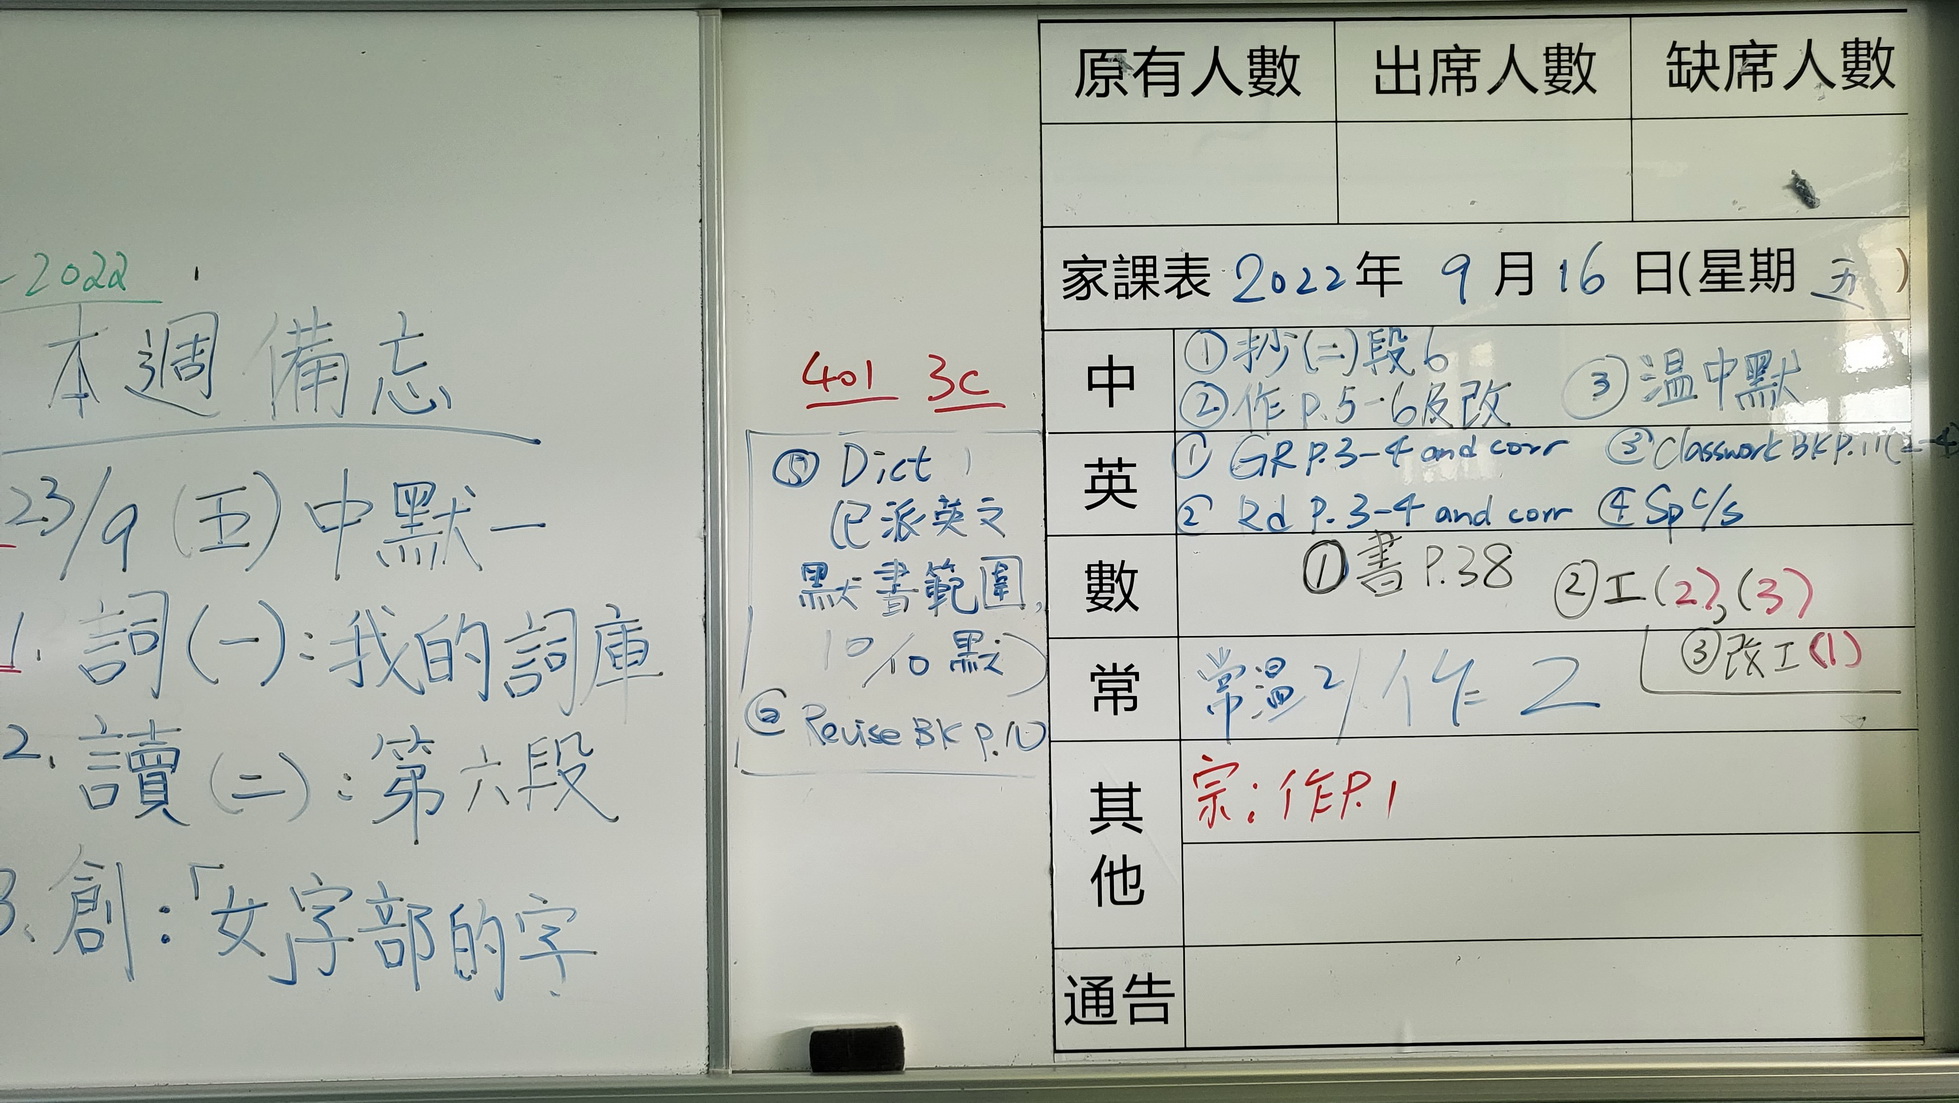 -2022
本週備忘
23/9(五)中默一
1. 詞(一):我的詞庫
2. 讀(二):第六段
3. 創:「女字部的字
401 3C
⑤ Dict
(已派英文
默書範圍,
10/10默)
⑥ Revise BK P.10
原有人數 出席人數 缺席人數
家課表 2022年 9月16日(星期五)
中 ①抄(二)段6
②作P.5-6及改 ③溫中默
英 ① GR P.3-4 and corr ③ Classwork BK P.11(2-4)
② Rd P.3-4 and corr ④ Sp c/s
數 ①書P.38 ②工(2),(3)
③改工(1)
常 常溫2/作2
其他 宗:作P.1
通告